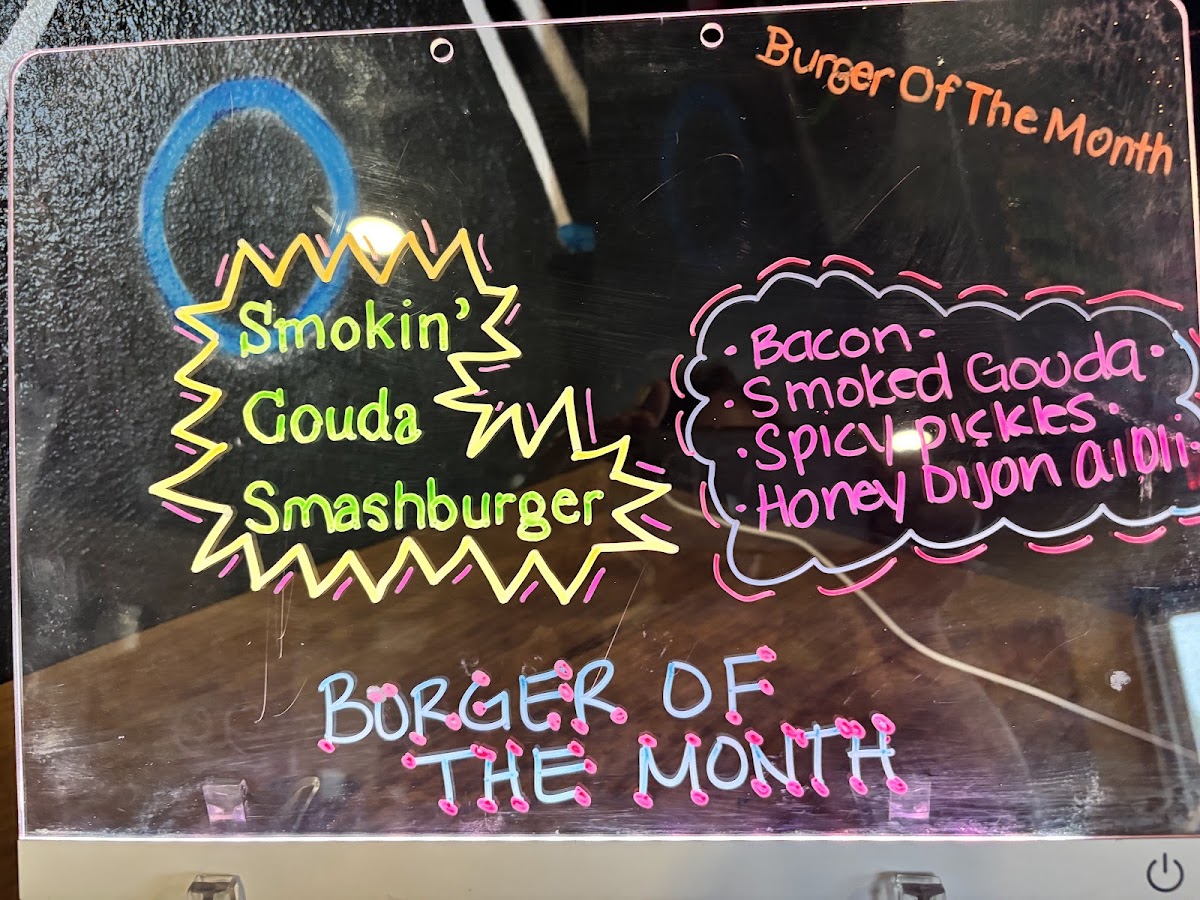 Burger Of The Month
Smokin'
Gouda
Smashburger
• Bacon •
• Smoked Gouda •
• Spicy pickles •
• Honey Dijon aiOli •
BURGER OF
THE MONTH